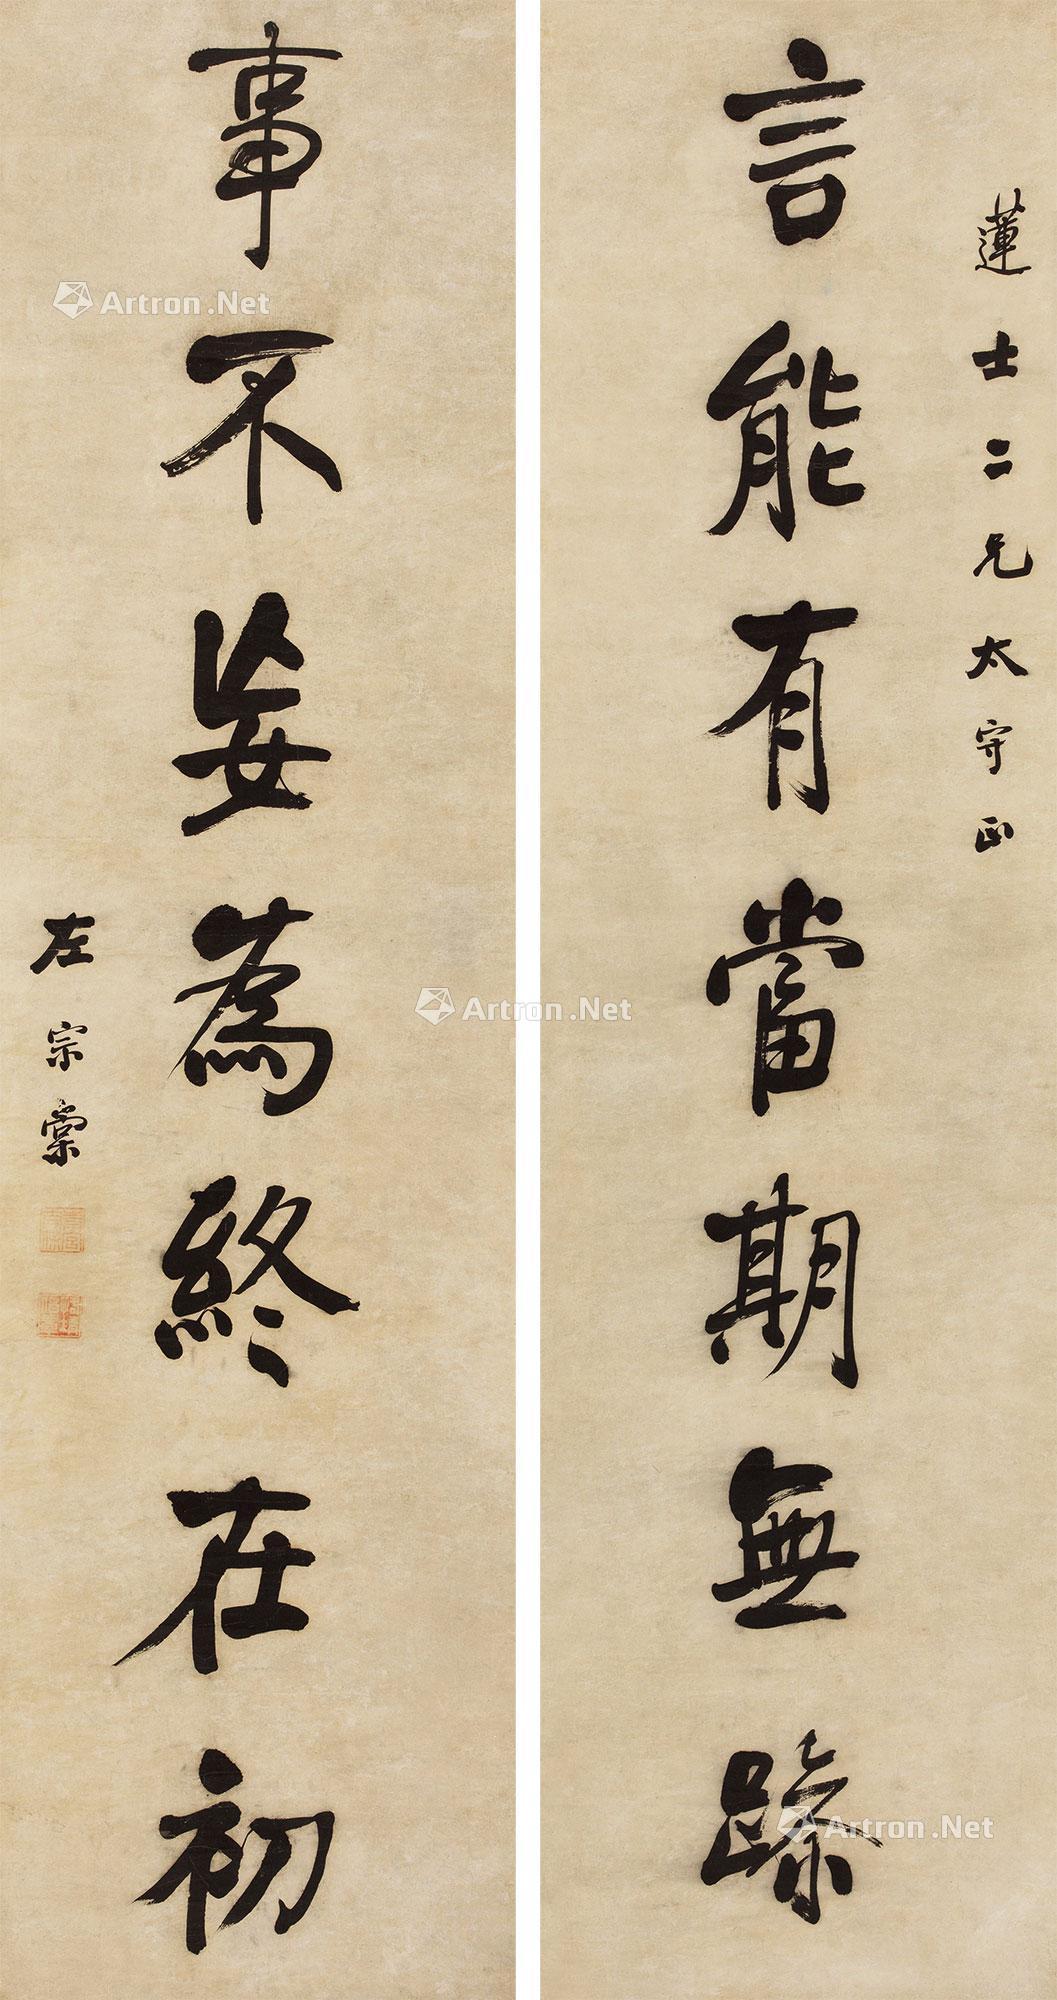 蓮士二兄太守正
言能有當期無躁
事不妄為終在初
左宗棠
Artron.Net
Artron.Net
Artron.Net